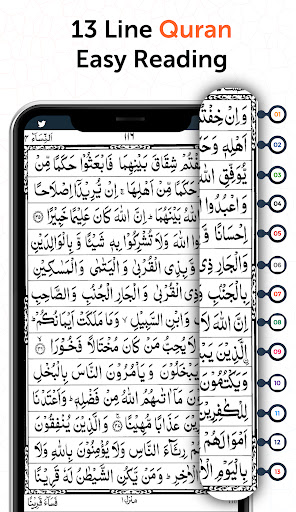 13 Line Quran
Easy Reading
١١٦ اَلنِّسَآء
وَاِنْ خِفْتُمْ شِقَاقَ بَيْنِهِمَا فَابْعَثُوْا حَكَمًا مِّنْ
01
اَهْلِهٖ وَحَكَمًا مِّنْ اَهْلِهَا ۚ اِنْ يُّرِيْدَآ اِصْلَاحًا
02
يُّوَفِّقِ اللّٰهُ بَيْنَهُمَا ؕ اِنَّ اللّٰهَ كَانَ عَلِيْمًا خَبِيْرًا ۝٣٥
03
وَاعْبُدُوا اللّٰهَ وَلَا تُشْرِكُوْا بِهٖ شَيْـًٔا وَّبِالْوَالِدَيْنِ
04
اِحْسَانًا وَّبِذِى الْقُرْبٰى وَالْيَتٰمٰى وَالْمَسٰكِيْنِ
05
وَالْجَارِ ذِى الْقُرْبٰى وَالْجَارِ الْجُنُبِ وَالصَّاحِبِ
06
بِالْجَنْۢبِ وَابْنِ السَّبِيْلِ ۙ وَمَا مَلَكَتْ اَيْمَانُكُمْ ؕ
07
اِنَّ اللّٰهَ لَا يُحِبُّ مَنْ كَانَ مُخْتَالًا فَخُوْرَا ۝٣٦
08
الَّذِيْنَ يَبْخَلُوْنَ وَيَاْمُرُوْنَ النَّاسَ بِالْبُخْلِ
09
وَيَكْتُمُوْنَ مَآ اٰتٰىهُمُ اللّٰهُ مِنْ فَضْلِهٖ ؕ وَاَعْتَدْنَا
10
لِلْكٰفِرِيْنَ عَذَابًا مُّهِيْنًا ۝٣٧ وَالَّذِيْنَ يُنْفِقُوْنَ
11
اَمْوَالَهُمْ رِئَآءَ النَّاسِ وَلَا يُؤْمِنُوْنَ بِاللّٰهِ وَلَا
12
بِالْيَوْمِ الْاٰخِرِ ؕ وَمَنْ يَّكُنِ الشَّيْطٰنُ لَهٗ قَرِيْنًا
13
فَسَآءَ قَرِيْنًا